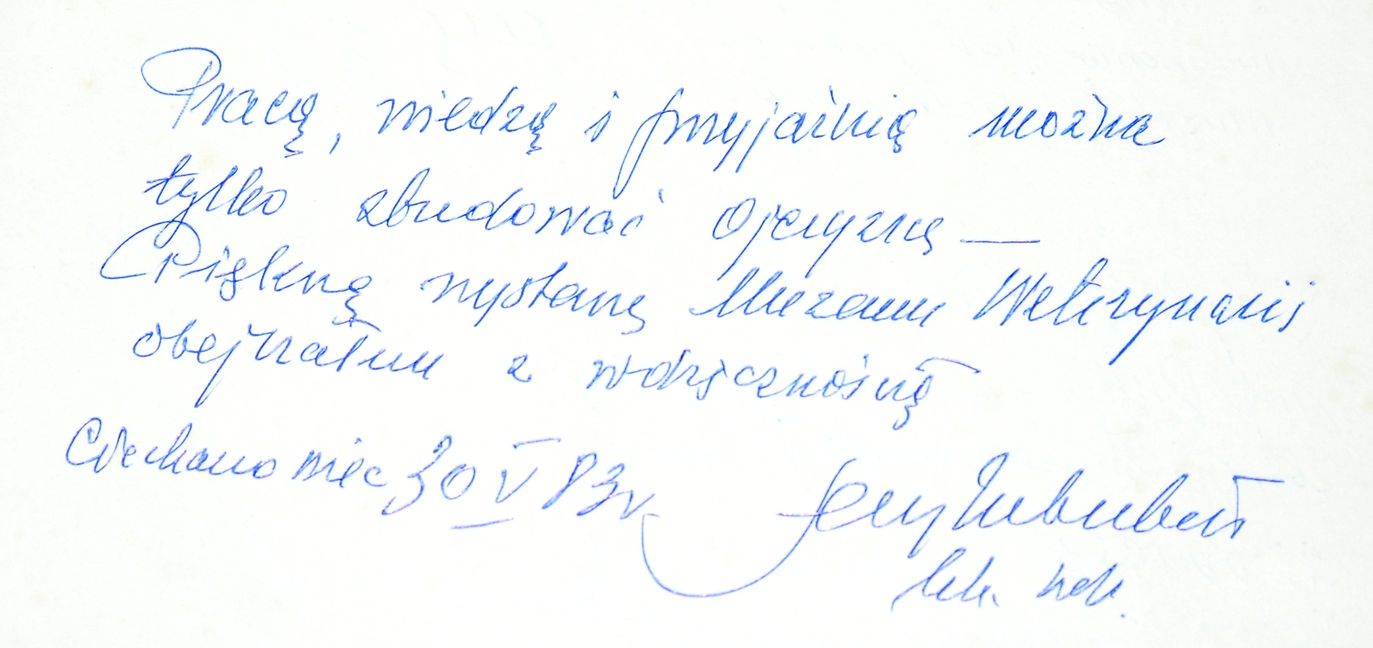 Pracą, wiedzą i przyjaźnią można
tylko zbudować Ojczyznę —
Piękną wystawę Muzeum Weterynarii
obejrzałem z wdzięcznością
Ciechanowiec 30 V 83r
Jerzy
lek. wet.